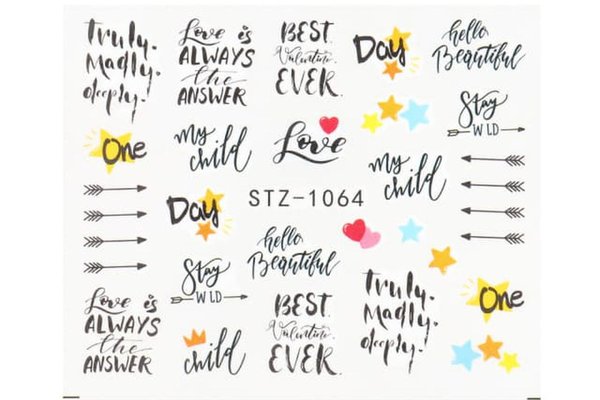 Truly.
Madly.
deeply.
Love is
ALWAYS
the
ANSWER
BEST
Valentine
EVER.
Day
hello
Beautiful
Stay
WLD
One
my
child
Love
my
child
Day
STZ-1064
hello
Beautiful
Stay
WLD
Truly.
Madly.
deeply.
One
Love is
ALWAYS
the
ANSWER
child
BEST
Valentine
EVER.